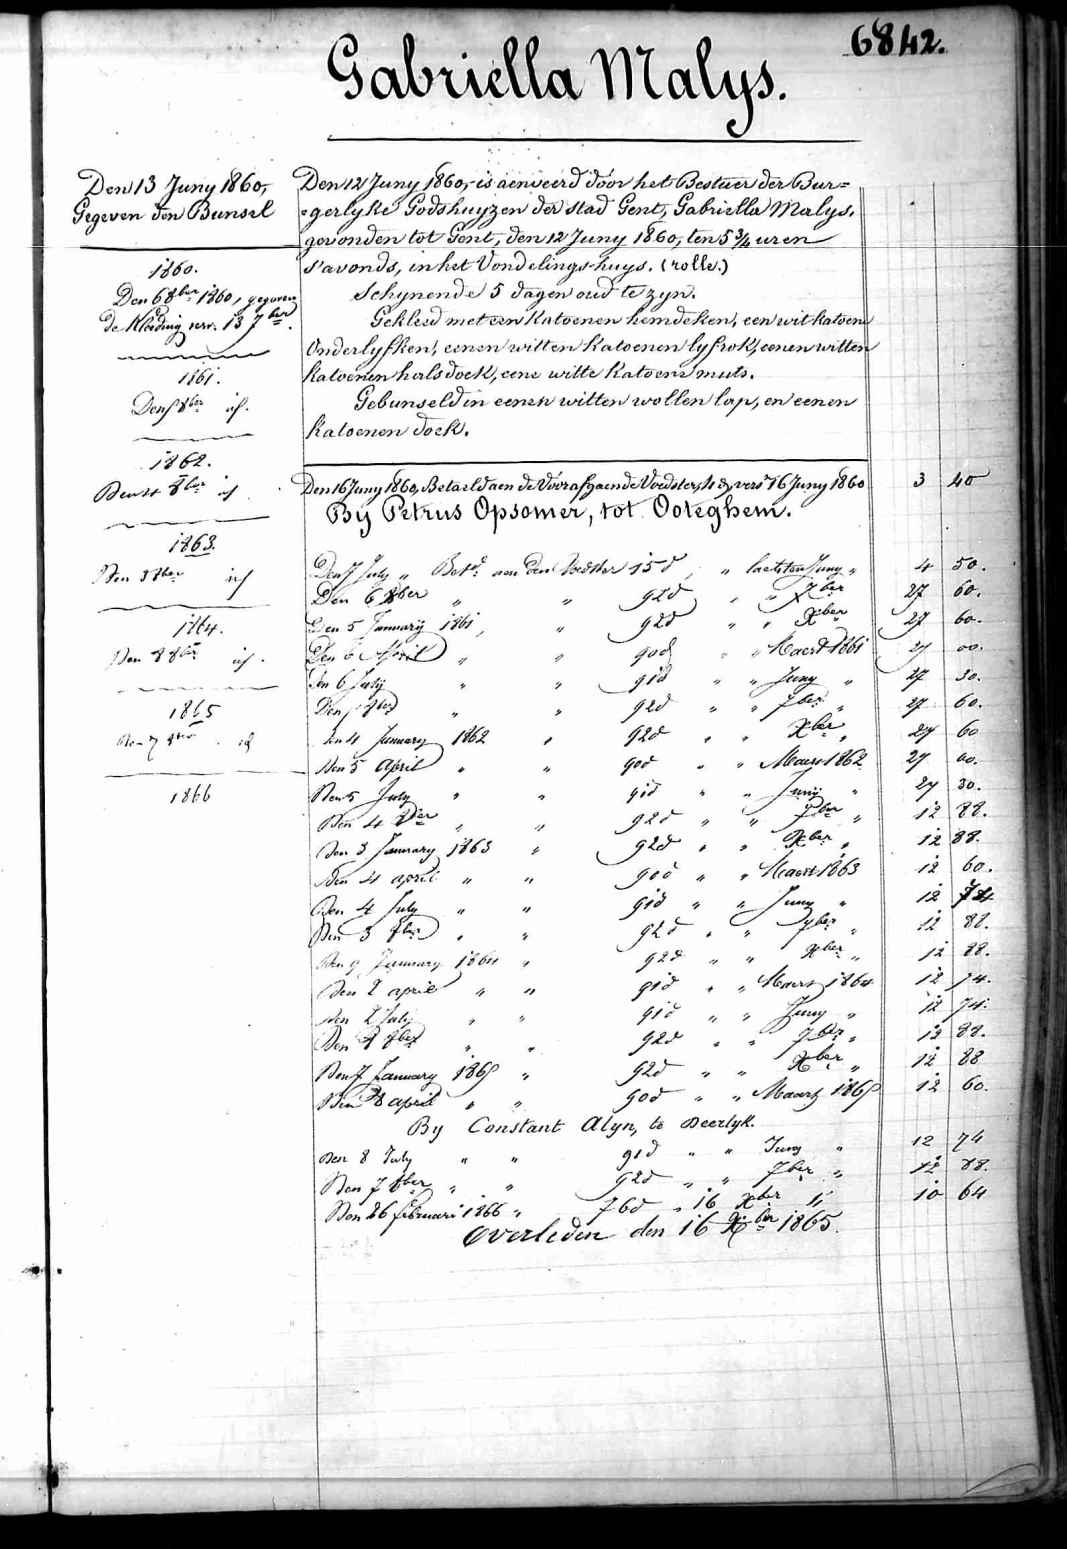 6842.
Gabriella Malys.
Den 13 Juny 1860,
Gegeven den Bunsel
1860.
Den 6 8ber 1860, gegeven
de Kleeding verv. 13 7ber.
1861.
Den 8ber id.
1862.
Den 4 8ber id
1863.
Den 3 8ber id
1864.
Den 8 8ber id.
1865
Den 7 8ber. id
1866
Den 12 Juny 1860, is aenveerd door het Bestuer der Bur=
=gerlyke Godshuyzen der stad Gent, Gabriella Malys,
gevonden tot Gent, den 12 Juny 1860, ten 5 3/4 uren
s'avonds, in het Vondelings-huys. (rolle.)
Schynende 5 dagen oud te zyn.
Gekleed met een Katoenen hemdeken, een wit katoen
Onderlyfken, eenen witten Katoenen lyfrok, eenen witten
katoenen halsdoek, eene witte Katoene muts.
Gebunseld in eenen witten wollen lap, en eenen
Katoenen doek.
Den 16 Juny 1860, Betaeld aen de Voorafgaende Voedster, 4 d, vers 16 Juny 1860 3 40
By Petrus Opsomer, tot Ooteghem.
Den 7 July " Betd. aen den Voedster 15d " laetsten Juny " 4 50.
Den 6 8ber " " 92d " " 7ber 27 60.
Den 5 January 1861, " 92d " " Xber 27 60.
Den 6 April " " 90d " " Maert 1861 27 00.
Den 6 July " " 91d " " Juny " 27 30.
Den 8ber " " 92d " " 7ber " 27 60.
Den 4 January 1862 " 92d " " Xber " 27 60
Den 5 April " " 90d " " Maert 1862 27 00.
Den 5 July " " 91d " " Juny " 27 30.
Den 4 8ber " " 92d " " 7ber " 12 88.
Den 3 January 1863 " 92d " " Xber " 12 88.
Den 4 april " " 90d " " Maert 1863 12 60.
Den 4 July " " 91d " " Juny " 12 74
Den 3 8ber " " 92d " " 7ber " 12 88.
Den 9 January 1864 " 92d " " Xber " 12 88.
Den 2 april " " 91d " " Maert 1864 12 74.
Den 2 July " " 91d " " Juny " 12 74.
Den 8ber " " 92d " " 7ber " 12 88.
Den 7 January 1865 " 92d " " Xber " 12 88
Den 8 april " " 90d " " Maart 1865 12 60.
By Constant Alyn, te Deerlyk.
Den 8 July " " 91d " " Juny " 12 74
Den 7 8ber " " 92d " " 7ber " 12 88.
Den 26 februari 1866 " 76d " 16 Xber " 10 64
Overleden den 16 Xber 1865.